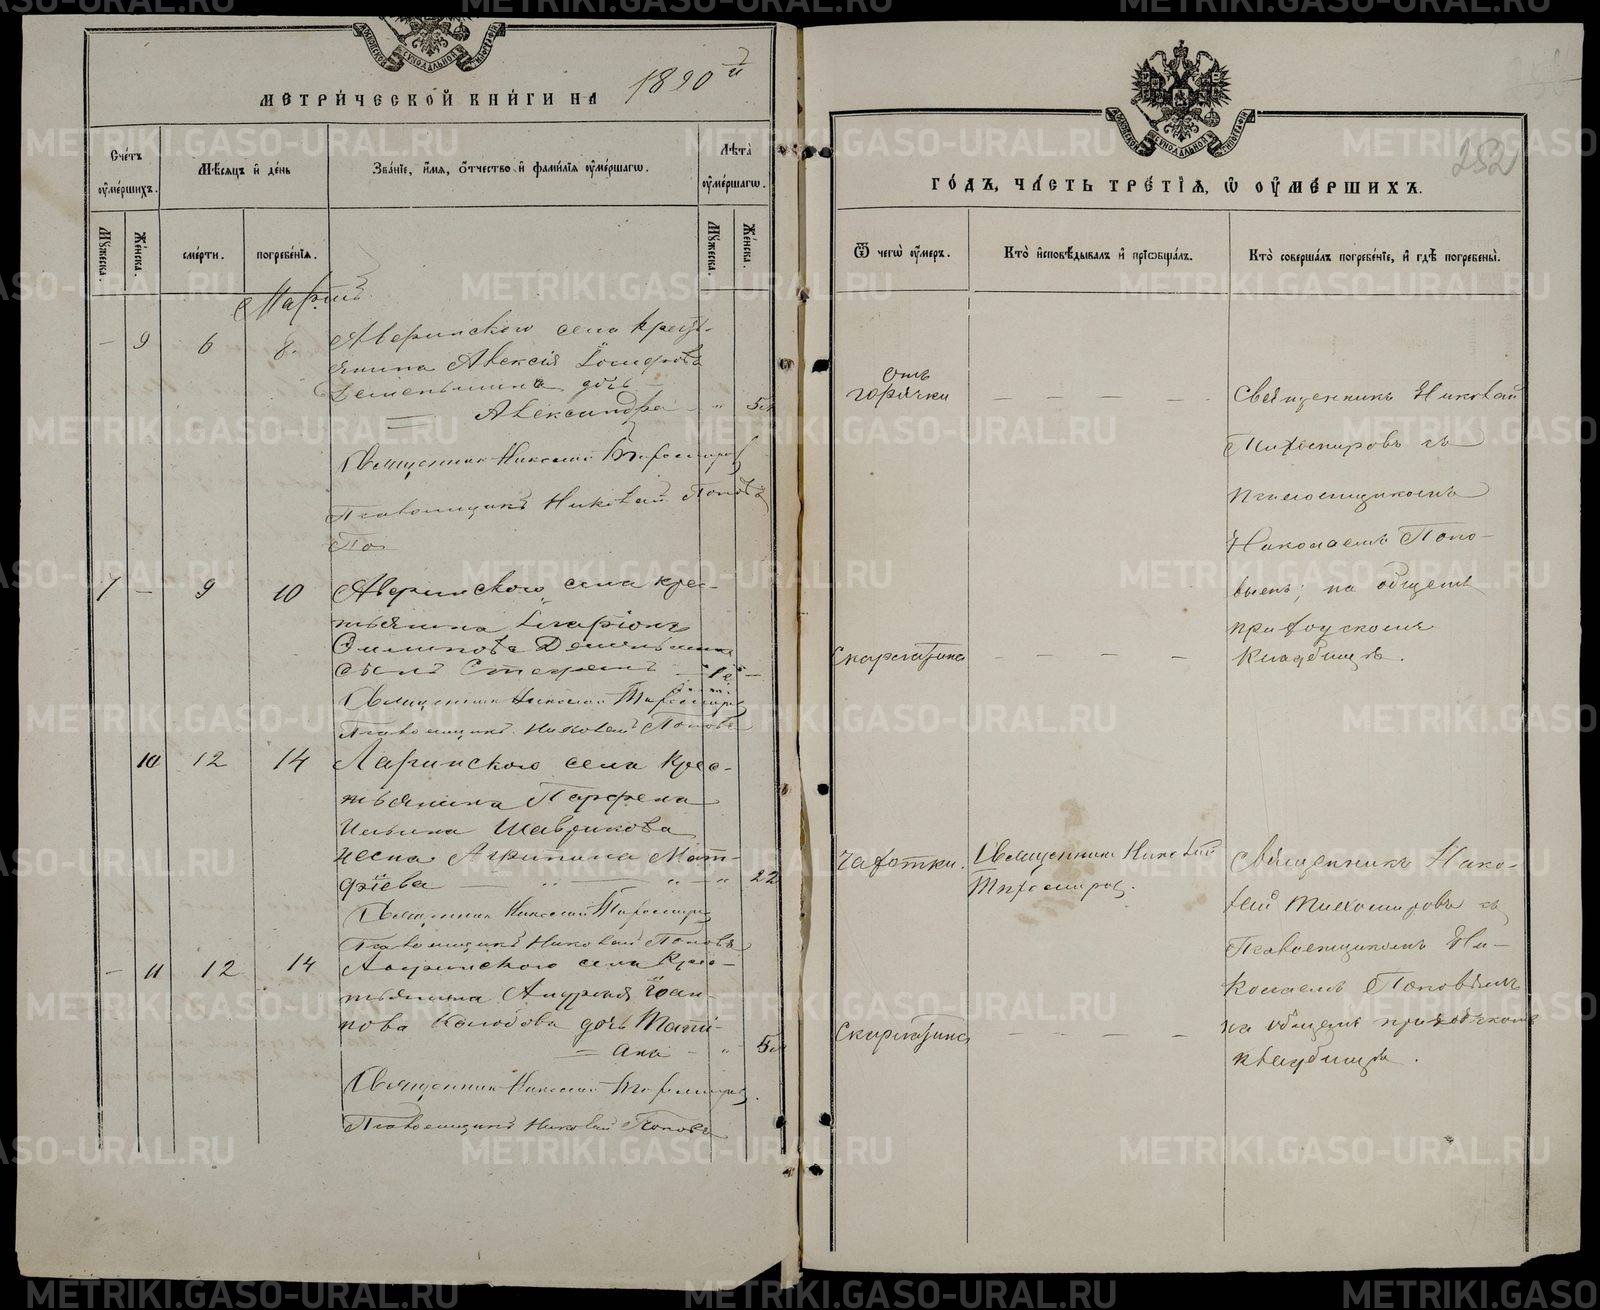 МЕТРИ́ЧЕСКОЙ КНИ́ГИ НА 1890 й
Сче́тъ оу҆ме́ршихъ.
Мѣ́сяцъ и҆ де́нь
Зва́нїе, и҆́мѧ, ѻ҆́тчество и҆ фами́лїѧ оу҆ме́ршагѡ.
Лѣ́та оу҆ме́ршагѡ.
Мꙋ́жеска.
Же́нска.
сме́рти.
погребе́нїѧ.
Мꙋ́жеска.
Же́нска.
Мартъ
— 9 6 8.
Аверинского села крест-
янина Алексія Іосифова
Деменьшина дочь
Александра — „ 5 л
Священник Николай Тихомиров
Псаломщикъ Николай Поповъ
По
7 — 9 10
Аверинского села крес-
тьянина Иларіона
Деменьшина
сынъ Стефанъ — 1 —
Священник Николай Тихомиров
Псаломщикъ Николай Поповъ
10 12 14
села крес-
тьянина Парфена
Ильина Шаврикова
жена Агрипина Мат-
фіева — „ — „ — „ 22
Священник Николай Тихомиров
Псаломщикъ Николай Поповъ
— 11 12 14
Аверинского села крес-
тьянина Андрея Іоан-
нова Колобова дочь Таті-
ана — „ 5 л
Священник Николай Тихомиров.
Псаломщикъ Николай Поповъ
252
ГО́ДЪ, ЧА́СТЬ ТРЕ́ТІѦ, Ѡ҆ ОУ҆МЕ́РШИХЪ.
Ѿ чегѡ̀ оу҆́меръ.
Кто̀ и҆сповѣ́дывалъ и҆ прїѡбща́лъ.
Кто̀ соверша́лъ погребе́нїе, и҆ гдѣ̀ погребены̀.
отъ
горячки — — — — —
Священникъ Николай
Тихомировъ съ
псаломщикомъ
Николаемъ Попо-
вымъ; на общемъ
приходскомъ
кладбищѣ.
Скарлатина — — — —
Чахотки.
Священник Николай
Тихомиров.
Священникъ Нико-
лай Тихомировъ съ
Псаломщикомъ Ни-
колаемъ Поповымъ
на общемъ приходскомъ
кладбищѣ.
Скарлатина — — — —
METRIKI.GASO-URAL.RU